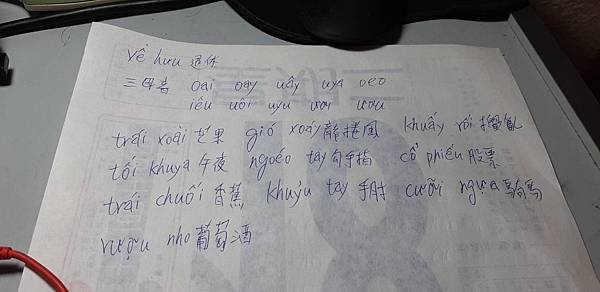 về hưu 退休
三母音 oai oay uây uya oeo
iêu uôi uyu ươi ươu
trái xoài 芒果 gió xoáy 龍捲風 khuấy rối 攪亂
tối khuya 午夜 ngoéo tay 勾手指 cổ phiếu 股票
trái chuối 香蕉 khuỷu tay 手肘 cưỡi ngựa 騎馬
rượu nho 葡萄酒